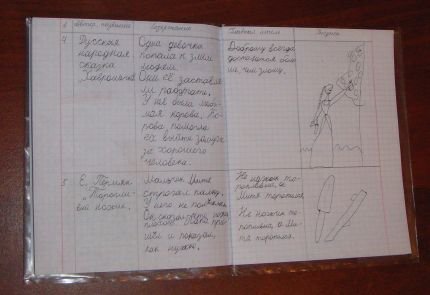 Автор, название
Содержание
Главная мысль
Рисунок
4
Русская
народная
сказка
Хаврошечка
Одна девочка
попала к злым
людям.
Они её заставля
ли работать.
У неё была люби
мая корова. Ко
рова помогла
ей выйти замуж
за хорошего
человека.
Доброму всегда
достаётся боль
ше, чем злому.
5
Е. Пермяк
„Торопли
вый ножик.
Мальчик Митя
строгал палку.
У него не получ
Он сказал
плохой.
шёл и показал,
как нужно.
Не ножик то
роплив, а
Митя торопился.
Не ножик то
ропливый, а Ми
тя торопился.